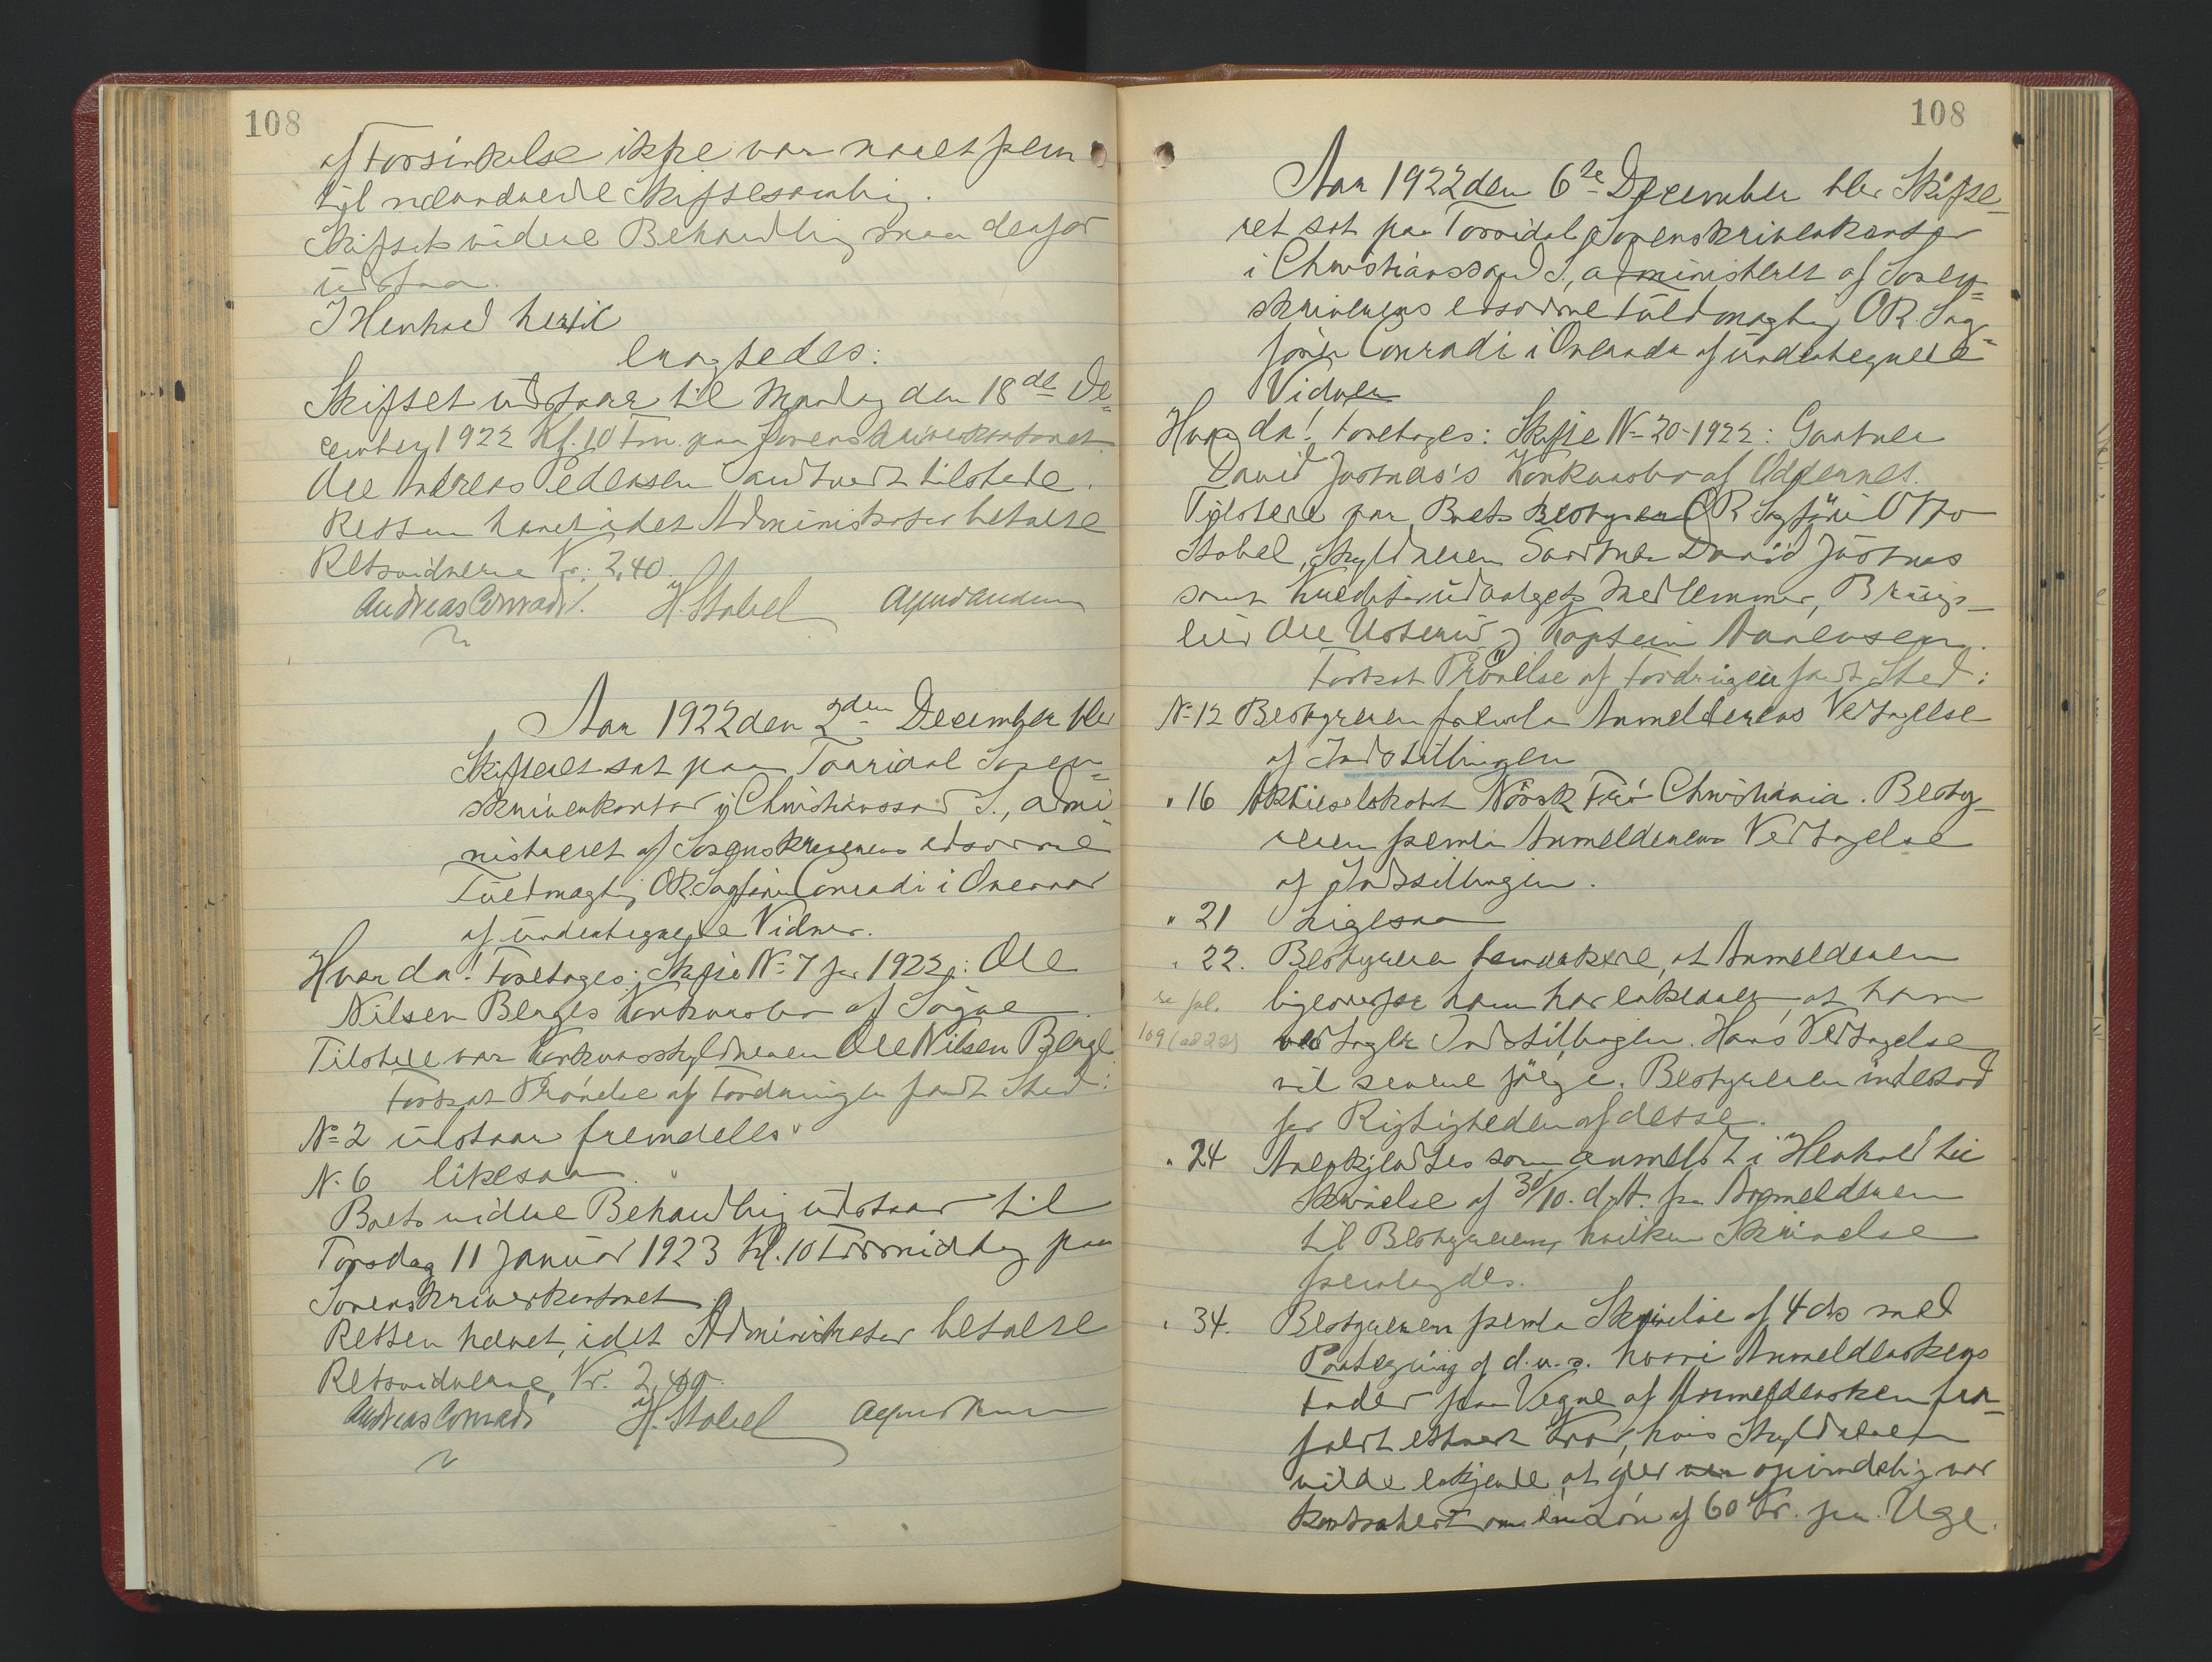 108
af Forsinkelse ikke var naaet frem
til nærværende Skiftesamling.
Skiftets videre Behandling maa derfor
udstaa.
I Henhold hertil
eragtedes:
Skiftet udstaar til Mandag den 18de De=
cember 1922 Kl. 10 Fm. paa Sorenskriverkontoret
Ole Andreas Pedersen tilstede.
Retten hævet idet Administrator betalte
Retsvidnerne Kr. 2,40.
Andreas Conradi. H. Stabel
Aar 1922 den 2den December blev
Skifteret sat paa Torridal Soren=
skriverkontor i Christianssand S., admi
nistreret af Sorenskriverens edsvorne
Fuldmægtig OR Sagfører Conradi i Overvær
af undertegnede Vidner.
Hvor da! Foretoges: Skifte No 7 for 1922: Ole
Nilsen Berges Konkursbo af Søgne
Tilstede var Konkursskyldneren Ole Nilsen Berge
Fortsat Prøvelse af Fordringer fandt Sted:
No 2 udstaar fremdeles
N. 6 likesaa
Boets videre Behandling udstaar til
Torsdag 11 Januar 1923 Kl. 10 Formiddag paa
Sorenskriverkontoret
Retten hævet, idet Administrator betalte
Retsvidnerne Kr. 2,40.
Andreas Conradi H. Stabel
108
Aar 1922 den 6te December blev Skifte=
ret sat paa Torridal Sorenskriverkontor
i Christianssand S., administreret af Soren=
skriverens edsvorne Fuldmægtig OR. Sag=
fører Conradi i Overvær af undertegnede
Vidner
Hvor da! Foretoges: Skifte No 20-1922: Gartner
David Justnæs's Konkursbo af Oddernes.
Tilstede var Boets Bestyrer OR Sagfører Otto
Stabel, Skyldneren Gartner David Justnes
samt Kreditorudvalgets Medlemmer, Brugs-
eier Ole Usterud og Kaptein Aanensen.
Fortsat Prøvelse af Fordringer fandt Sted:
No 12 Bestyreren fremla Anmelderens Vedtagelse
af Indstillingen
" 16 Aktieselskabet Norsk Frø Christiania. Besty-
reren fremla Anmelderens Vedtagelse
af Indstillingen.
" 21 Ligesaa
" 22. Bestyreren bemærkede, at Anmelderen
se fol. ligeoverfor ham har erklæret, at han
109 (ad 22) vedtager Indstillingen. Hans Vedtagelse
vil senere følge. Bestyreren indestod
for Rigtigheden af dette.
" 24 Anerkjendtes som anmeldt i Henhold til
Skrivelse af 30/10. d.A. fra Anmelderen
til Bestyreren, hvilken Skrivelse
fremlagdes.
" 34. Bestyreren fremla Skrivelse af 4 ds med
Paategning af d.u.s. hvori Anmelderskens
Fader paa Vegne af Anmeldersken fra=
faldt ethvert Krav, hvis Skyldneren
vilde erkjende, at der oprindelig var
kontrahert om en Løn af 60 Kr. pr. Uge.